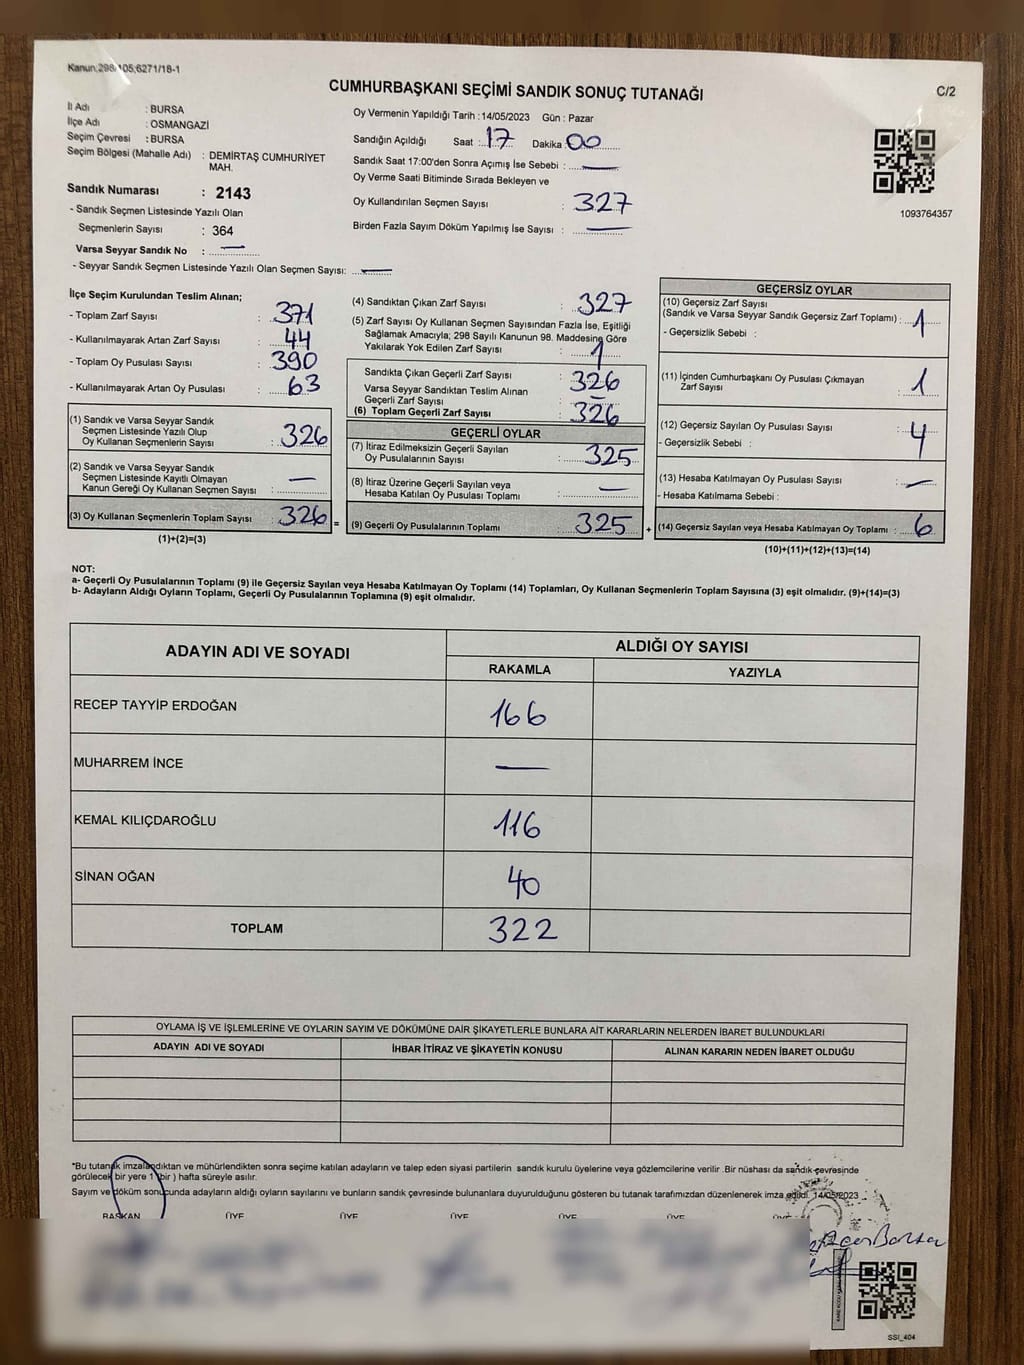 Kanun:298/105;6271/18-1
CUMHURBAŞKANI SEÇİMİ SANDIK SONUÇ TUTANAĞI
C/2
İl Adı : BURSA
İlçe Adı : OSMANGAZİ
Seçim Çevresi : BURSA
Seçim Bölgesi (Mahalle Adı) : DEMİRTAŞ CUMHURİYET
MAH.
Sandık Numarası : 2143
- Sandık Seçmen Listesinde Yazılı Olan
Seçmenlerin Sayısı : 364
Varsa Seyyar Sandık No : —
- Seyyar Sandık Seçmen Listesinde Yazılı Olan Seçmen Sayısı: —
Oy Vermenin Yapıldığı Tarih : 14/05/2023 Gün : Pazar
Sandığın Açıldığı Saat : 17 Dakika : 00
Sandık Saat 17:00'den Sonra Açımış İse Sebebi : —
Oy Verme Saati Bitiminde Sırada Bekleyen ve
Oy Kullandırılan Seçmen Sayısı : 327
Birden Fazla Sayım Döküm Yapılmış İse Sayısı : —
1093764357
İlçe Seçim Kurulundan Teslim Alınan;
- Toplam Zarf Sayısı : 371
- Kullanılmayarak Artan Zarf Sayısı : 44
- Toplam Oy Pusulası Sayısı : 390
- Kullanılmayarak Artan Oy Pusulası : 63
(1) Sandık ve Varsa Seyyar Sandık
Seçmen Listesinde Yazılı Olup
Oy Kullanan Seçmenlerin Sayısı : 326
(2) Sandık ve Varsa Seyyar Sandık
Seçmen Listesinde Kayıtlı Olmayan
Kanun Gereği Oy Kullanan Seçmen Sayısı : —
(3) Oy Kullanan Seçmenlerin Toplam Sayısı : 326 =
(1)+(2)=(3)
(4) Sandıktan Çıkan Zarf Sayısı : 327
(5) Zarf Sayısı Oy Kullanan Seçmen Sayısından Fazla İse, Eşitliği
Sağlamak Amacıyla; 298 Sayılı Kanunun 98. Maddesine Göre
Yakılarak Yok Edilen Zarf Sayısı : 1
Sandıkta Çıkan Geçerli Zarf Sayısı : 326
Varsa Seyyar Sandıktan Teslim Alınan
Geçerli Zarf Sayısı : —
(6) Toplam Geçerli Zarf Sayısı : 326
GEÇERLİ OYLAR
(7) İtiraz Edilmeksizin Geçerli Sayılan
Oy Pusulalarının Sayısı : 325
(8) İtiraz Üzerine Geçerli Sayılan veya
Hesaba Katılan Oy Pusulası Toplamı : —
(9) Geçerli Oy Pusulalarının Toplamı : 325 +
GEÇERSİZ OYLAR
(10) Geçersiz Zarf Sayısı
(Sandık ve Varsa Seyyar Sandık Geçersiz Zarf Toplamı) : 1
- Geçersizlik Sebebi :
(11) İçinden Cumhurbaşkanı Oy Pusulası Çıkmayan
Zarf Sayısı : 1
(12) Geçersiz Sayılan Oy Pusulası Sayısı : 4
- Geçersizlik Sebebi :
(13) Hesaba Katılmayan Oy Pusulası Sayısı : —
- Hesaba Katılmama Sebebi :
(14) Geçersiz Sayılan veya Hesaba Katılmayan Oy Toplamı : 6
(10)+(11)+(12)+(13)=(14)
NOT:
a- Geçerli Oy Pusulalarının Toplamı (9) ile Geçersiz Sayılan veya Hesaba Katılmayan Oy Toplamı (14) Toplamları, Oy Kullanan Seçmenlerin Toplam Sayısına (3) eşit olmalıdır. (9)+(14)=(3)
b- Adayların Aldığı Oyların Toplamı, Geçerli Oy Pusulalarının Toplamına (9) eşit olmalıdır.
ADAYIN ADI VE SOYADI
ALDIĞI OY SAYISI
RAKAMLA YAZIYLA
RECEP TAYYİP ERDOĞAN 166
MUHARREM İNCE —
KEMAL KILIÇDAROĞLU 116
SİNAN OĞAN 40
TOPLAM 322
OYLAMA İŞ VE İŞLEMLERİNE VE OYLARIN SAYIM VE DÖKÜMÜNE DAİR ŞİKAYETLERLE BUNLARA AİT KARARLARIN NELERDEN İBARET BULUNDUKLARI
ADAYIN ADI VE SOYADI İHBAR İTİRAZ VE ŞİKAYETİN KONUSU ALINAN KARARIN NEDEN İBARET OLDUĞU
*Bu tutanak imzalandıktan ve mühürlendikten sonra seçime katılan adayların ve talep eden siyasi partilerin sandık kurulu üyelerine veya gözlemcilerine verilir .Bir nüshası da sandık çevresinde
görülecek bir yere 1 (bir ) hafta süreyle asılır.
Sayım ve döküm sonucunda adayların aldığı oyların sayılarını ve bunların sandık çevresinde bulunanlara duyurulduğunu gösteren bu tutanak tarafımızdan düzenlenerek imza edildi. 14/05/2023
BAŞKAN ÜYE ÜYE ÜYE ÜYE ÜYE
SSI_404